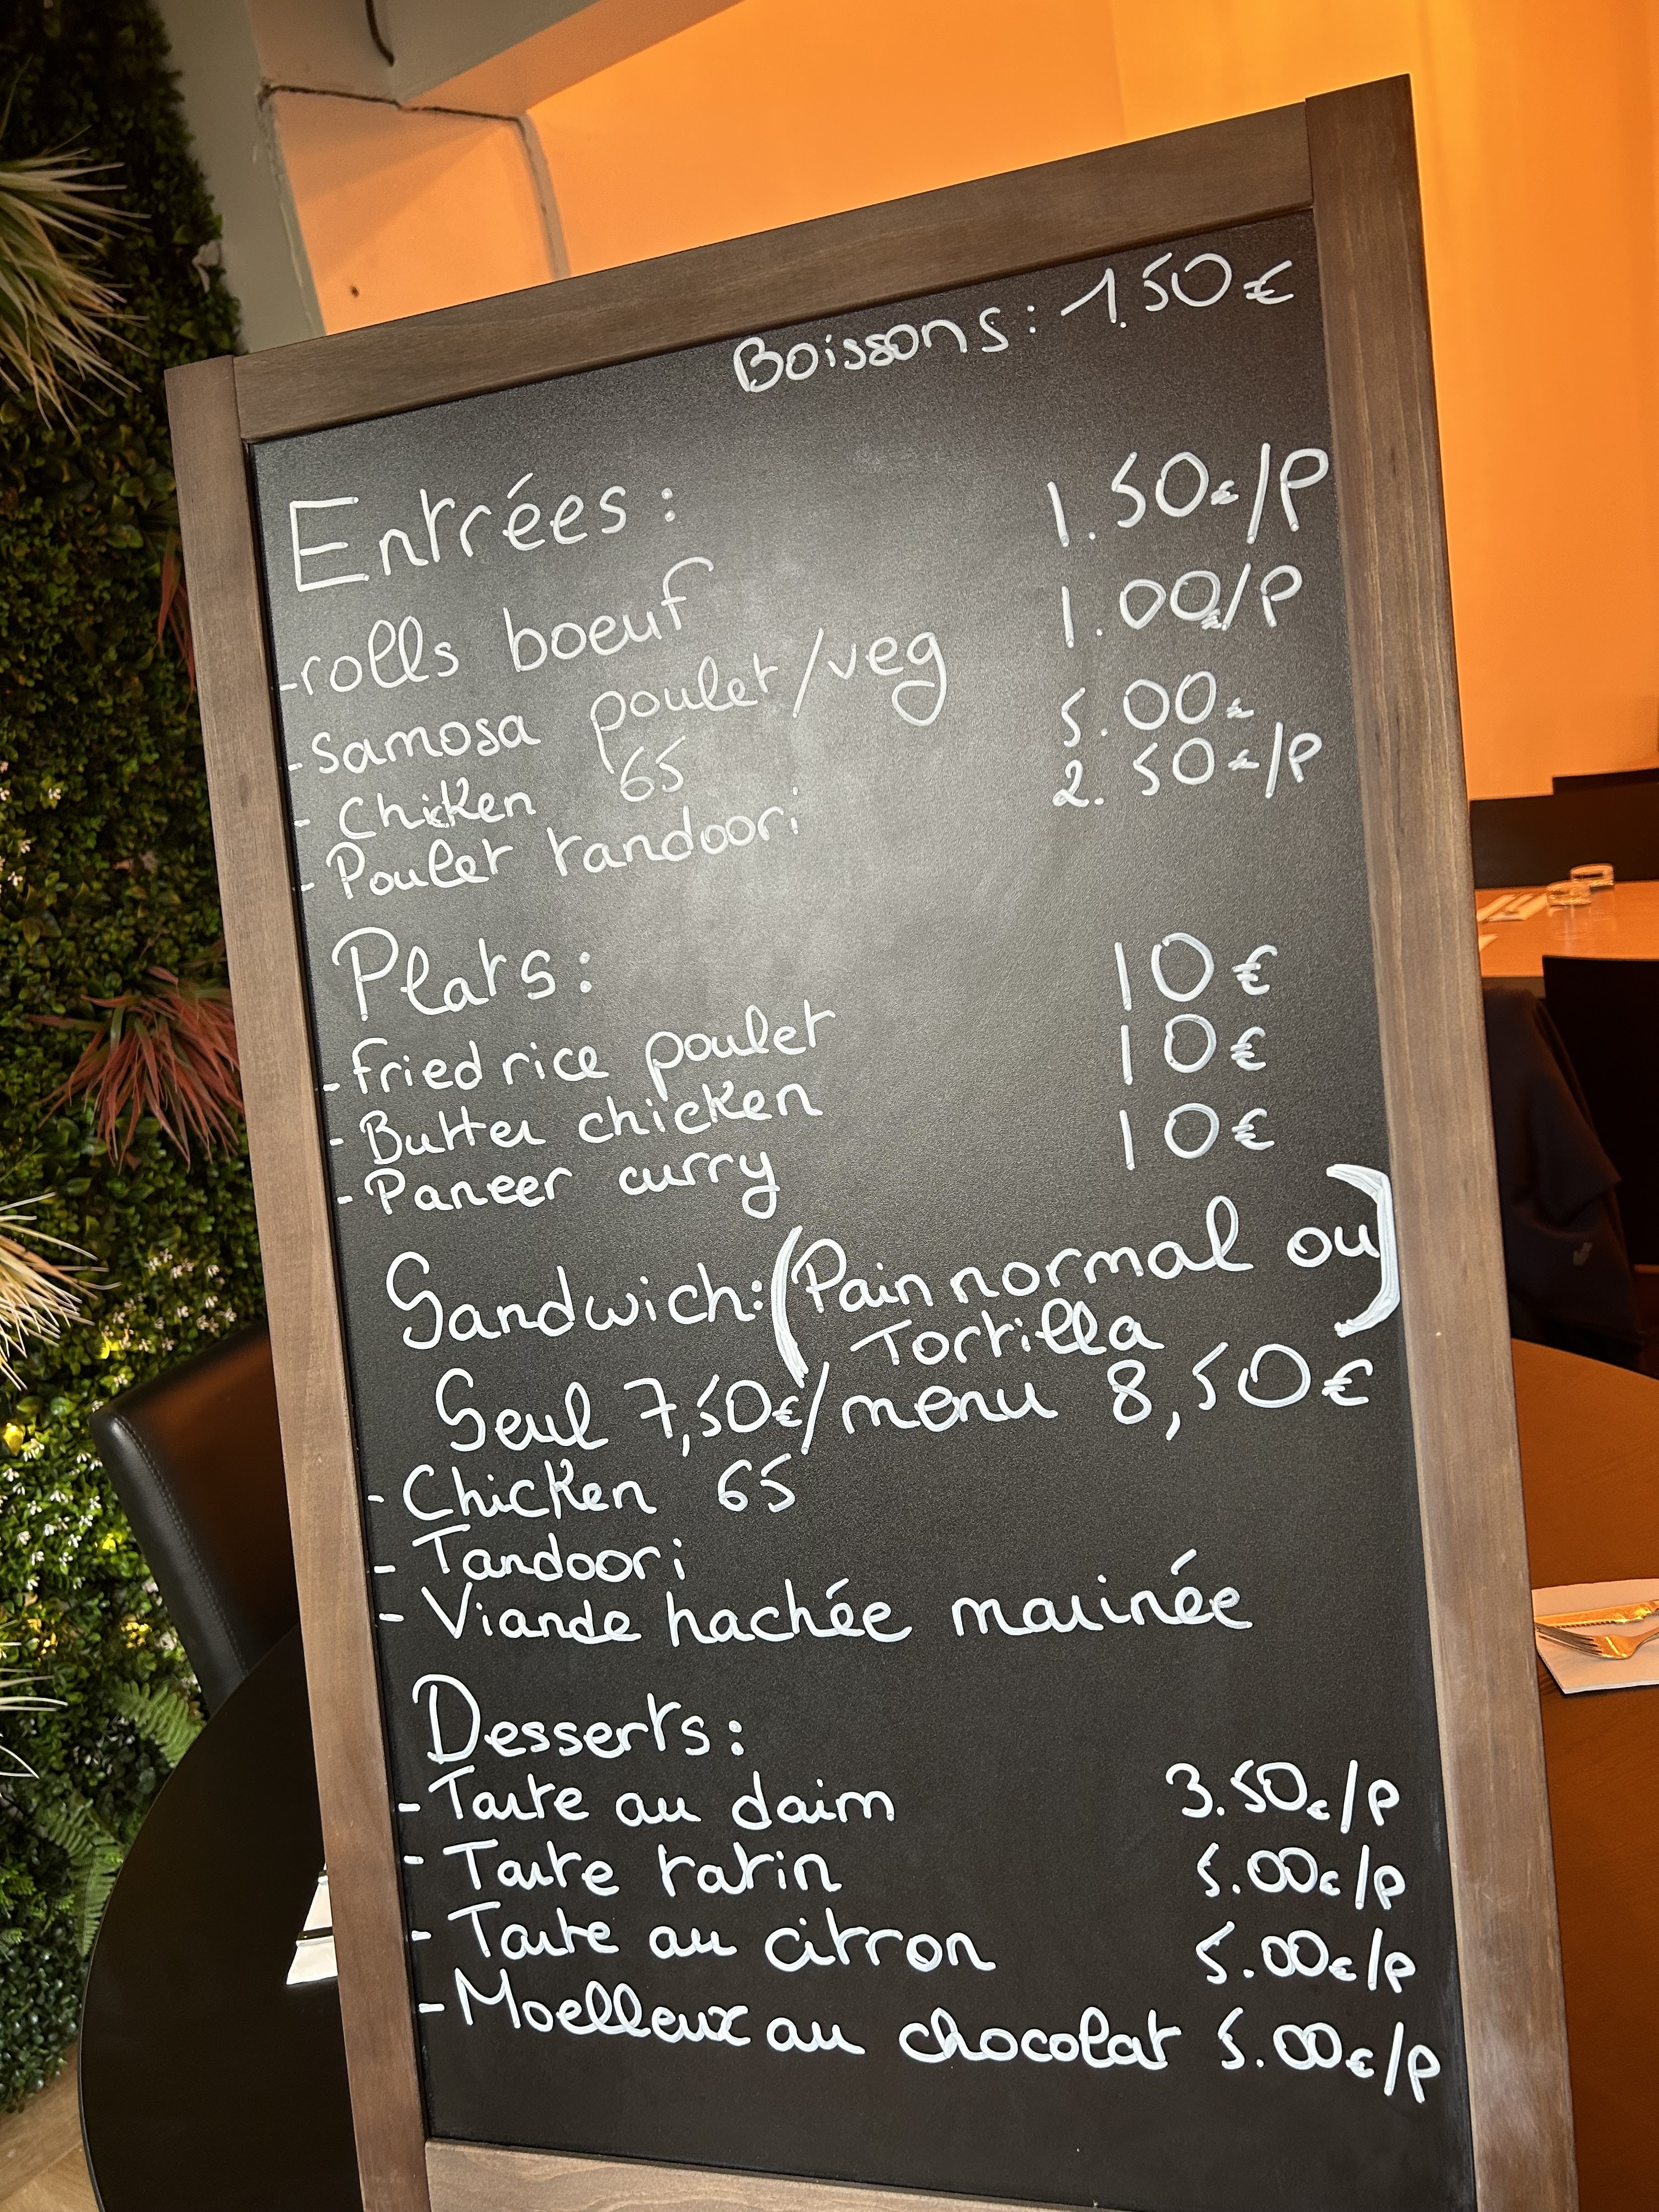 Boissons: 1.50€
Entrées: 1.50€/P
-rolls boeuf 1.00€/P
-samosa poulet/veg 5.00€
-Chicken 65 2.50€/P
-Poulet tandoori
Plats: 10€
-Fried rice poulet 10€
-Butter chicken 10€
-Paneer curry
Sandwich: (Pain normal ou
Tortilla)
Seul 7,50€/menu 8,50€
-Chicken 65
-Tandoori
-Viande hachée marinée
Desserts:
-Tarte au daim 3.50€/P
-Tarte tatin 5.00€/P
-Tarte au citron 5.00€/P
-Moelleux au chocolat 5.00€/P